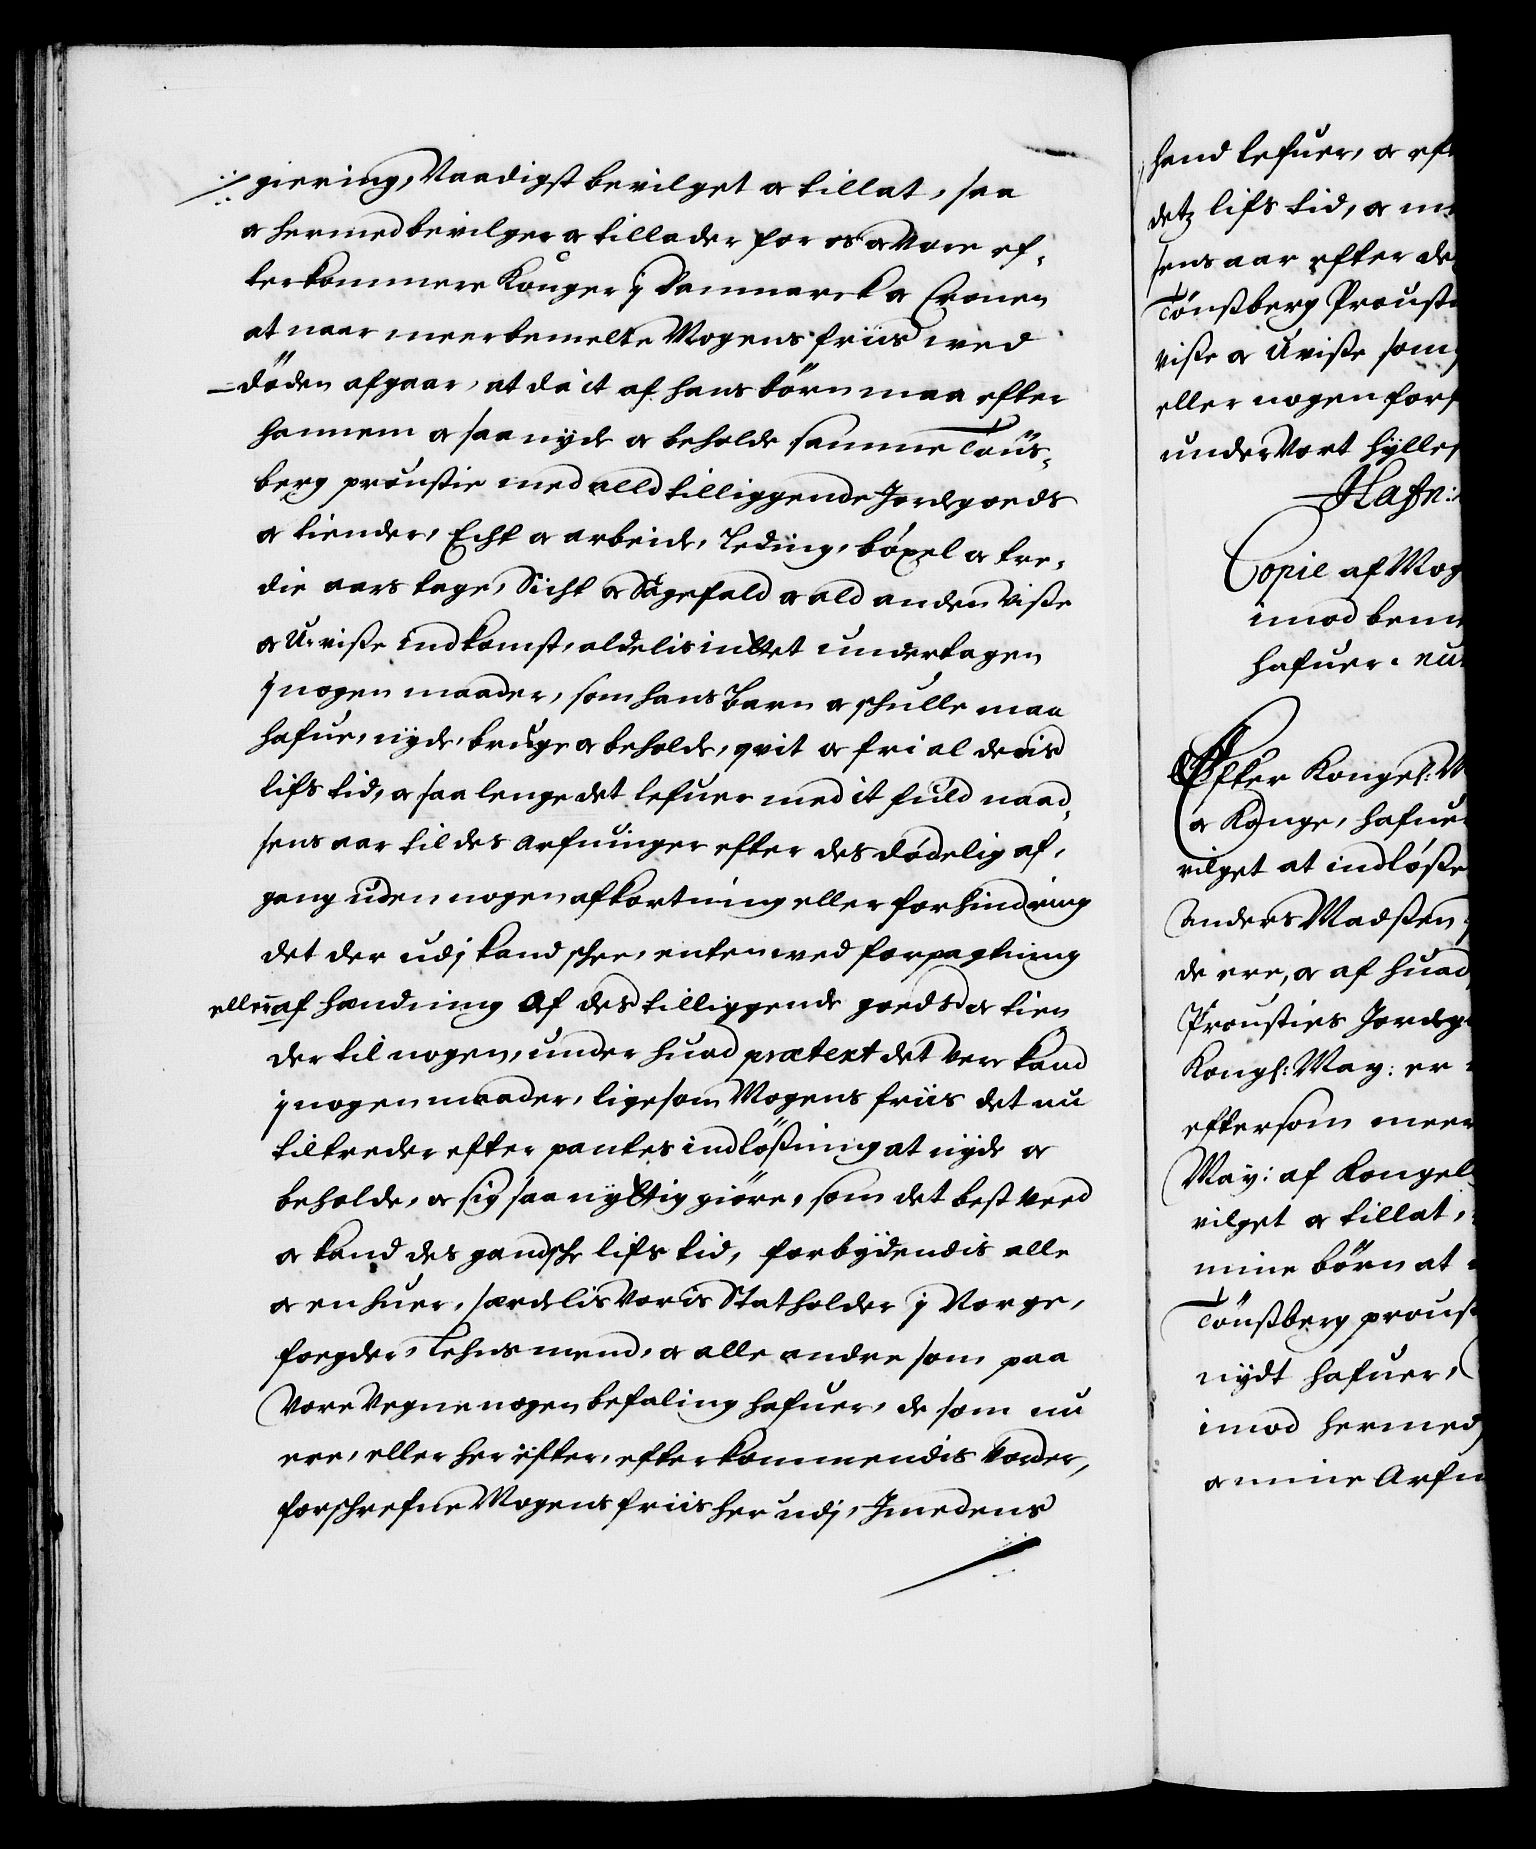 giering, Naadigst bevilget oc tillat, saa
oc hermed bevilger oc tillader for os oc Vore ef-
terkommere Konger j Danmarck oc Cronen
at naar meerbemelte Mogens friis ved
döden afgaar, at da it af hans börn maa efter
hannem oc saa nyde oc beholde samme Töns-
berg proustie med alld tilliggende Jordegoeds
oc tiender, Echt oc arbeide, Leding, böxel oc tre-
die aars tage, Sicht oc Sagefald oc ald anden Visse
oc U-visse indkomst, aldelis inttet undertagen
j nogen maader, som hans Barn oc schulle maa
hafue, nyde, bruge oc beholde, qvit oc fri al deris
lifs tid, oc saa lenge det lefuer med it fuld naad-
sens aar til des arfuinger efter des dödelig af-
gang uden nogen afkortning eller forhindring
det der udj kand schee, enten ved forpagtning
eller afhændning af des tilliggende goeds oc tien
der til nogen, under huad prætext det Vere kand
j nogen maader, ligesom Mogens friis det nu
tiltreder efter pantes indlösning at nyde oc
beholde, oc sig saa nyttig giöre, som det best Veed
oc kand des gandsche lifs tid, forbydendis alle
oc en huer, særdelis Voris Statholder j Norge,
foegder, Lehnsmend, oc alle andre som paa
Vore Vegne nogen befaling hafuer, de som nu
ere, eller her efter, efterkommendis Vorder,
forschrefne Mogens friis her udj, Imedens
hand lefuer, oc eft
detz lifs tid, oc
sens aar efter de
Tönsberg Prousti
visse oc Uvisse som
eller nogen forf
under Vort Hylle
Hafn:
Copie af Mog
imod bem
hafuer. nu
Efter Kongel:
oc Konge, hafue
vilget at indlösse
Anders Madssen
de ere, oc af huad
Prousties Jordeg
Kongl: May: er
eftersom meer
May: af Kongel
vilget oc tillat,
mine börn at
Tönsberg proust
nydt hafuer,
imod hermed
oc mine Arfu